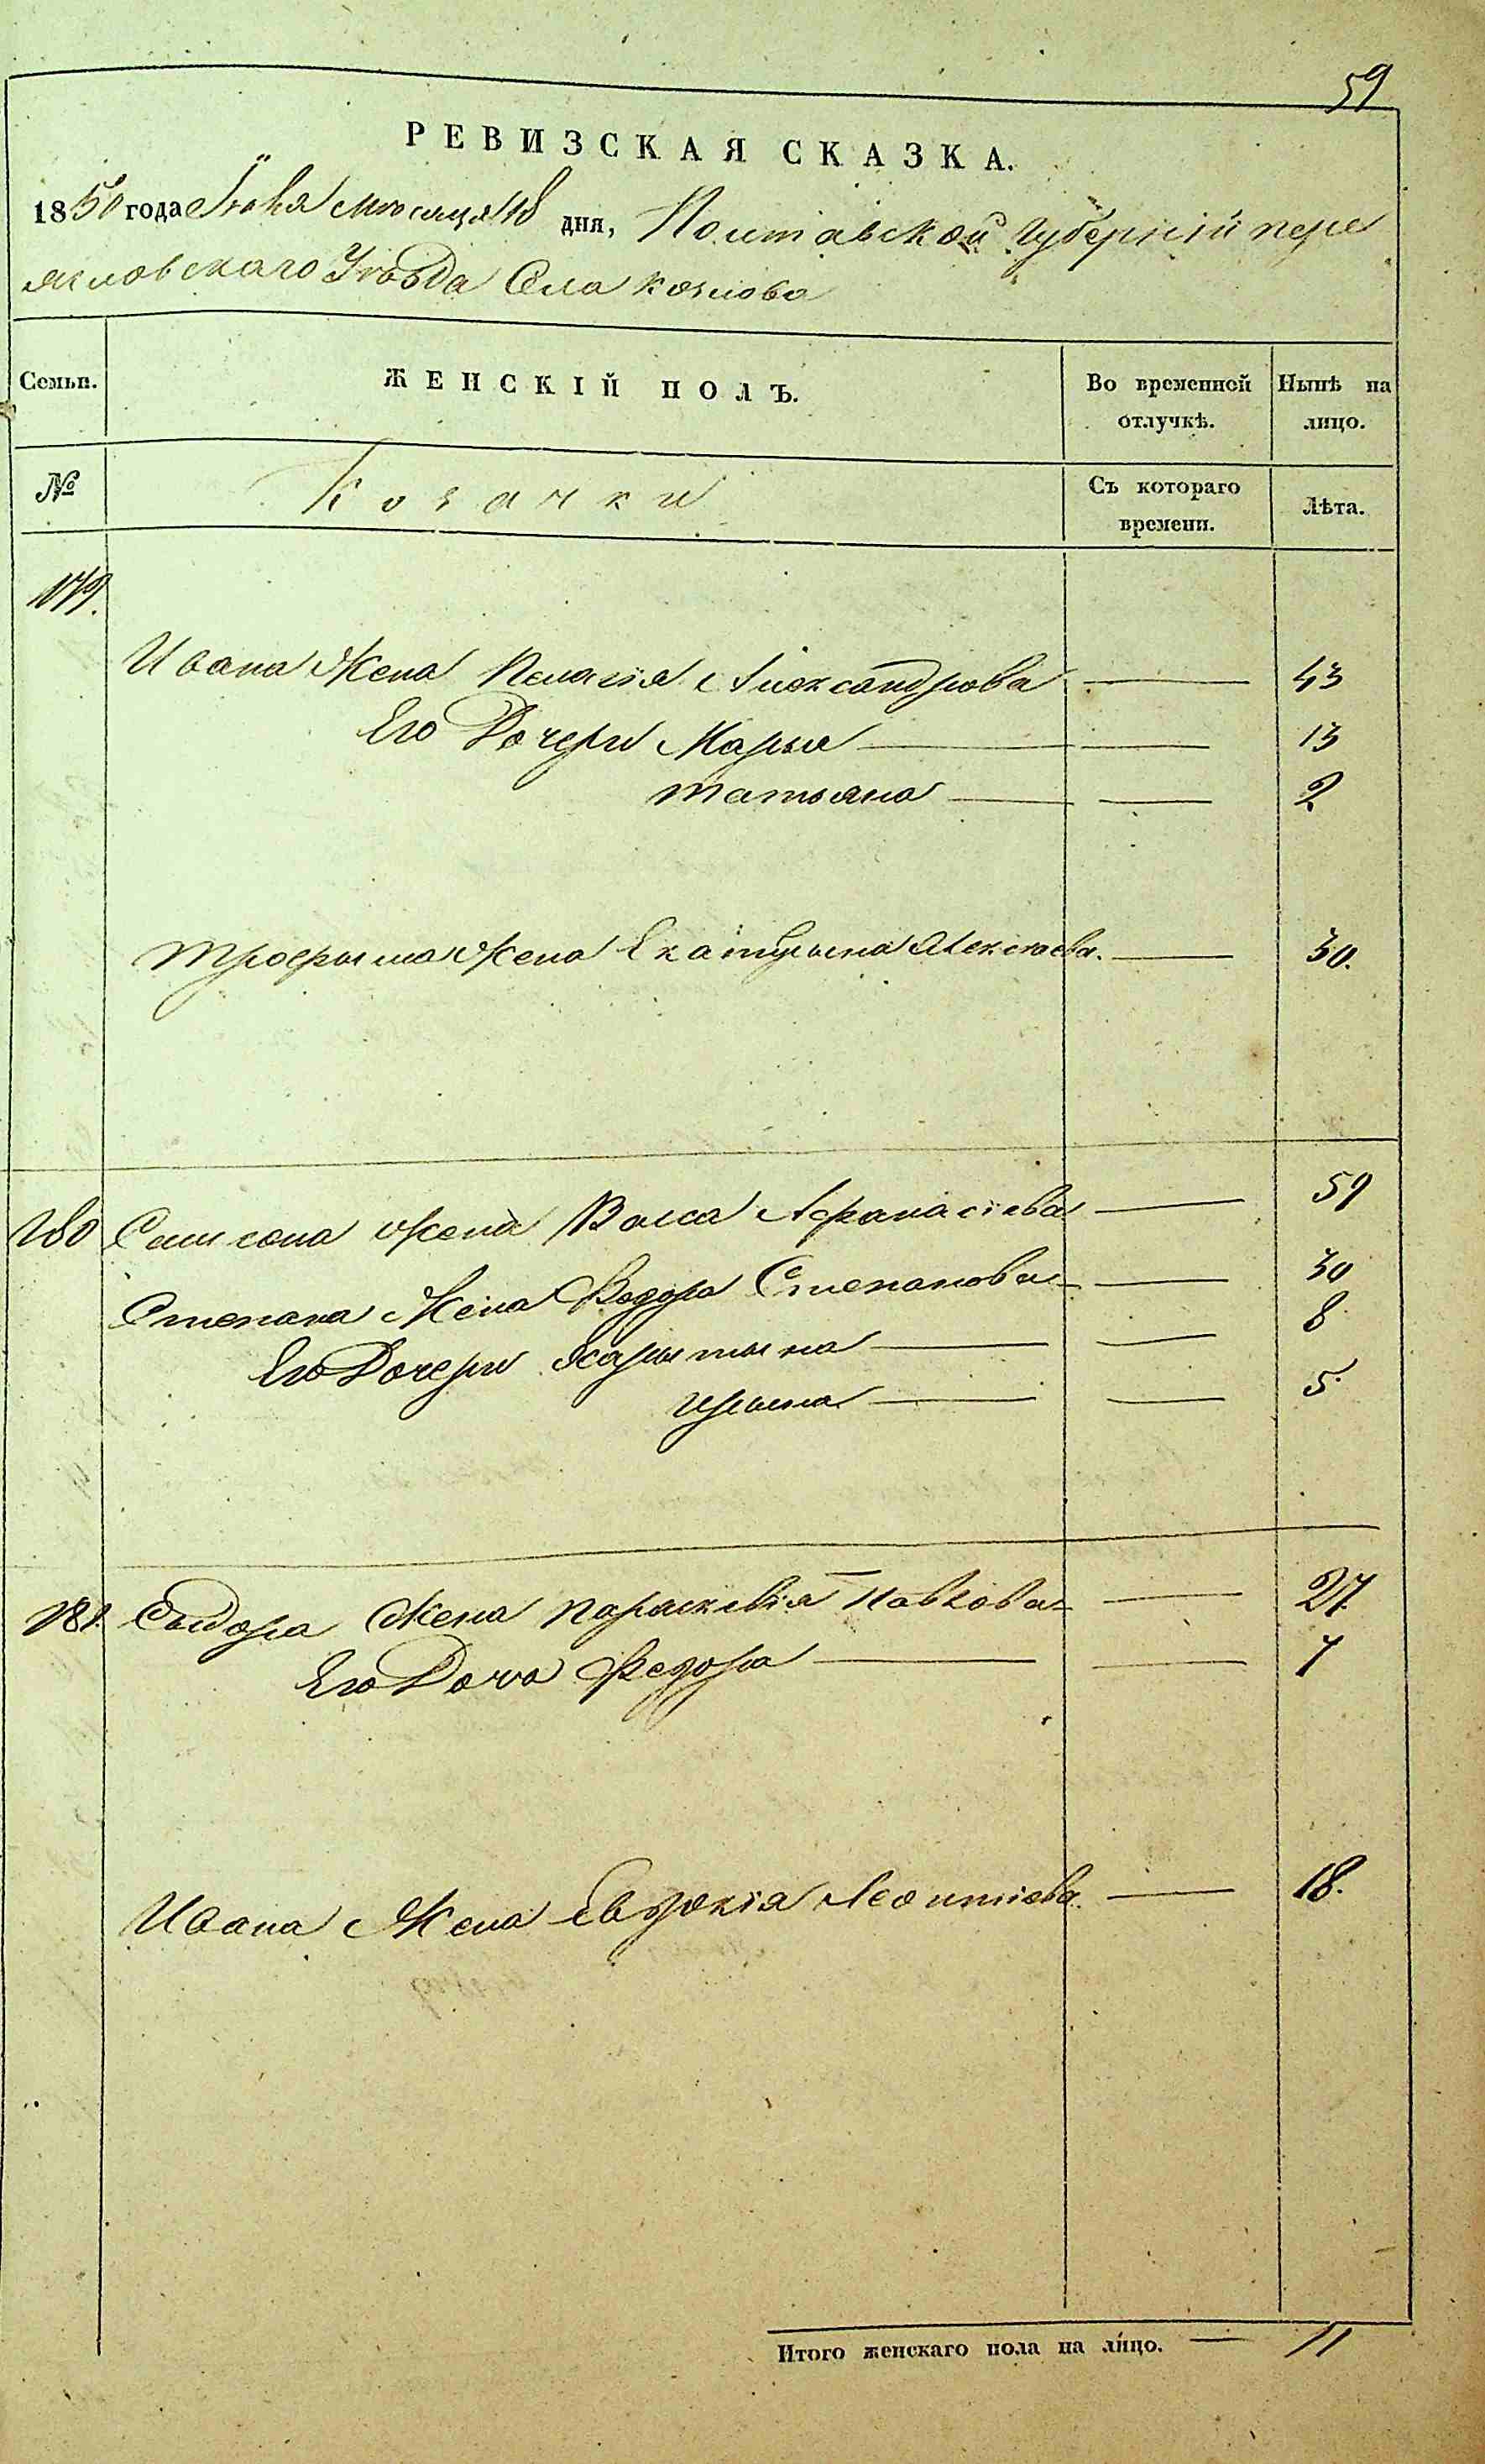 59
РЕВИЗСКАЯ СКАЗКА.
1850 года Іюня мѣсяця 18 дня, Полтавской Губерніи пере
яcловскаго Уѣзда Села козлова
Семьи. ЖЕНСКІЙ ПОЛЪ. Во временной отлучкѣ. Нынѣ на лицо.
№ Козачки Съ котораго времени. Лѣта.
179.
Ивана Жена Пелагія Александрова — 43
Его Дочери Марья — — 13
татьяна — — 2
трофыма Жена Екатерына Алексѣева. — 30.
180 Самсона Жена Васса Афанасіева — 59
Степана Жена Федора Степанова — 30
Его Дочери Харытына — — 8
Ирына — — 5.
181. Сыдора Жена Параскевія Павлова — 27.
Его Дочь Федора — — 7
Ивана Жена Евдокія Леонтіева. — 18.
Итого женскаго пола на лицо. — 11